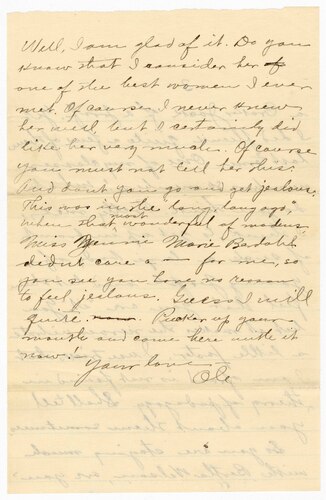 Well, I am glad of it. Do you
know that I consider her
one of the best women I ever
met. Of course I never knew
her well but I certainly did
like her very much. Of course
you must not tell her this.
And don't you go and get jealous.
This was in the long, long ago",
when that most wonderful of madens
Miss Minnie Marie
didn't care a — for me, so
you see you have no reason
to feel jealous. Guess I will
quire. Pucker up your
mouth and come here with it
now!
Your love
Ole